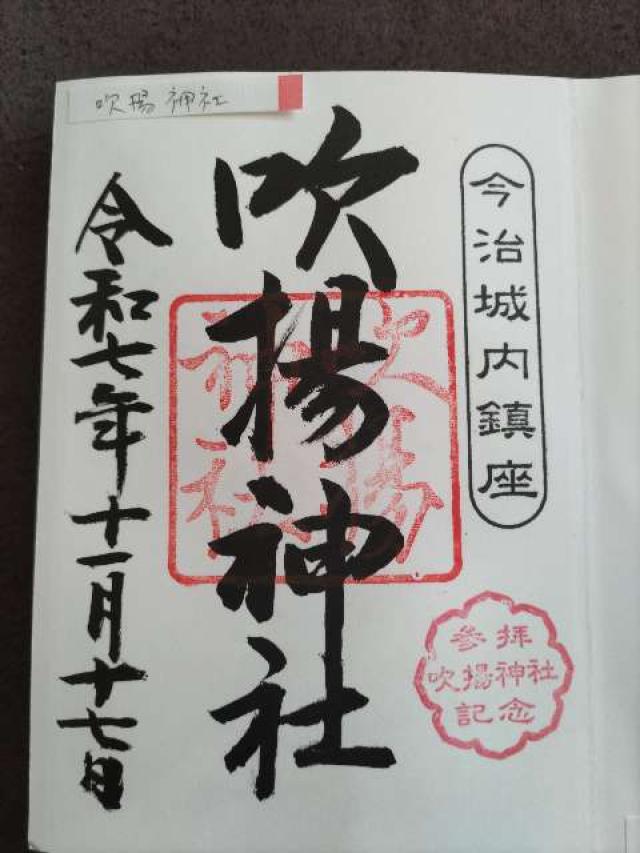 吹揚神社
今治城内鎮座
吹揚神社
吹揚
神社
参拝
吹揚神社
記念
令和七年十一月十七日